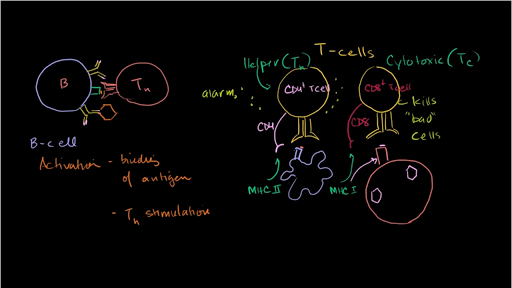 B
Tн
B-cell
Activation - binding
of antigen
- Tн stimulation
T-cells
Helper (Tн)
Cytotoxic (Tc)
alarm
CD4⁺ T cell
CD8⁺ T cell
CD4
CD8
kills
"bad"
cells
MHC II
MHC I